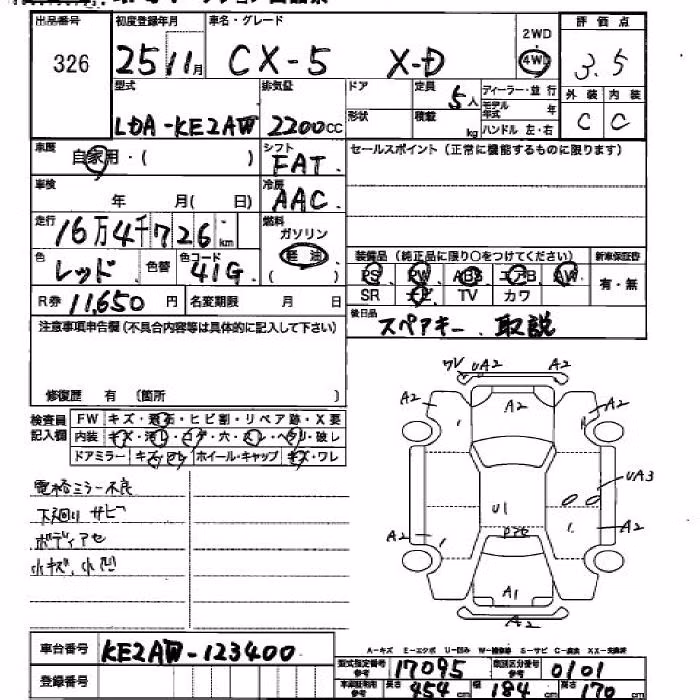 出品番号 初度登録年月 車名・グレード 2WD 評価点
326 25 11月 CX-5 X-D 4WD 3.5
型式 排気量 ドア 定員 5人 ディーラー・並行 外装 内装
LDA-KE2AW 2200cc 形状 積載 kg モデル年式 年 ハンドル 左・右 C C
車歴 自家用・( ) シフト FAT セールスポイント(正常に機能するものに限ります)
車検 年 月( 日) 冷房 AAC
走行 16万4千726km 燃料 ガソリン
軽油
色 レッド 色替 色コード 41G ( ) 装備品(純正品に限り○をつけてください) 新車保証書
PS PW ABS エアB AW 有・無
R券 11,650円 名変期限 月 日 SR ナビ TV カワ
後日品 スペアキー、取説
注意事項申告欄(不具合内容等は具体的に記入して下さい)
修復歴 有 (箇所 )
検査員記入欄 FW キズ・飛石・ヒビ割・リペア跡・X要
内装 キズ・汚レ・コゲ・穴・スレ・ヘタリ・破レ
ドアミラー キズ・ワレ ホイール・キャップ キズ・ワレ
WV UA2 A2
A2 A2 A2
電格ミラー不良
下廻りサビ
ボディアセ
小キズ、小凹
UA3
U1
A2 A2
A1
A2
車台番号 KE2AW-123400
A-キズ E-エクボ U-凹み W-補修跡 S-サビ C-腐食 XX-交換済
登録番号 型式指定番号 17095 類別区分番号 0101
長さ 454cm 幅 184cm 高さ 170cm